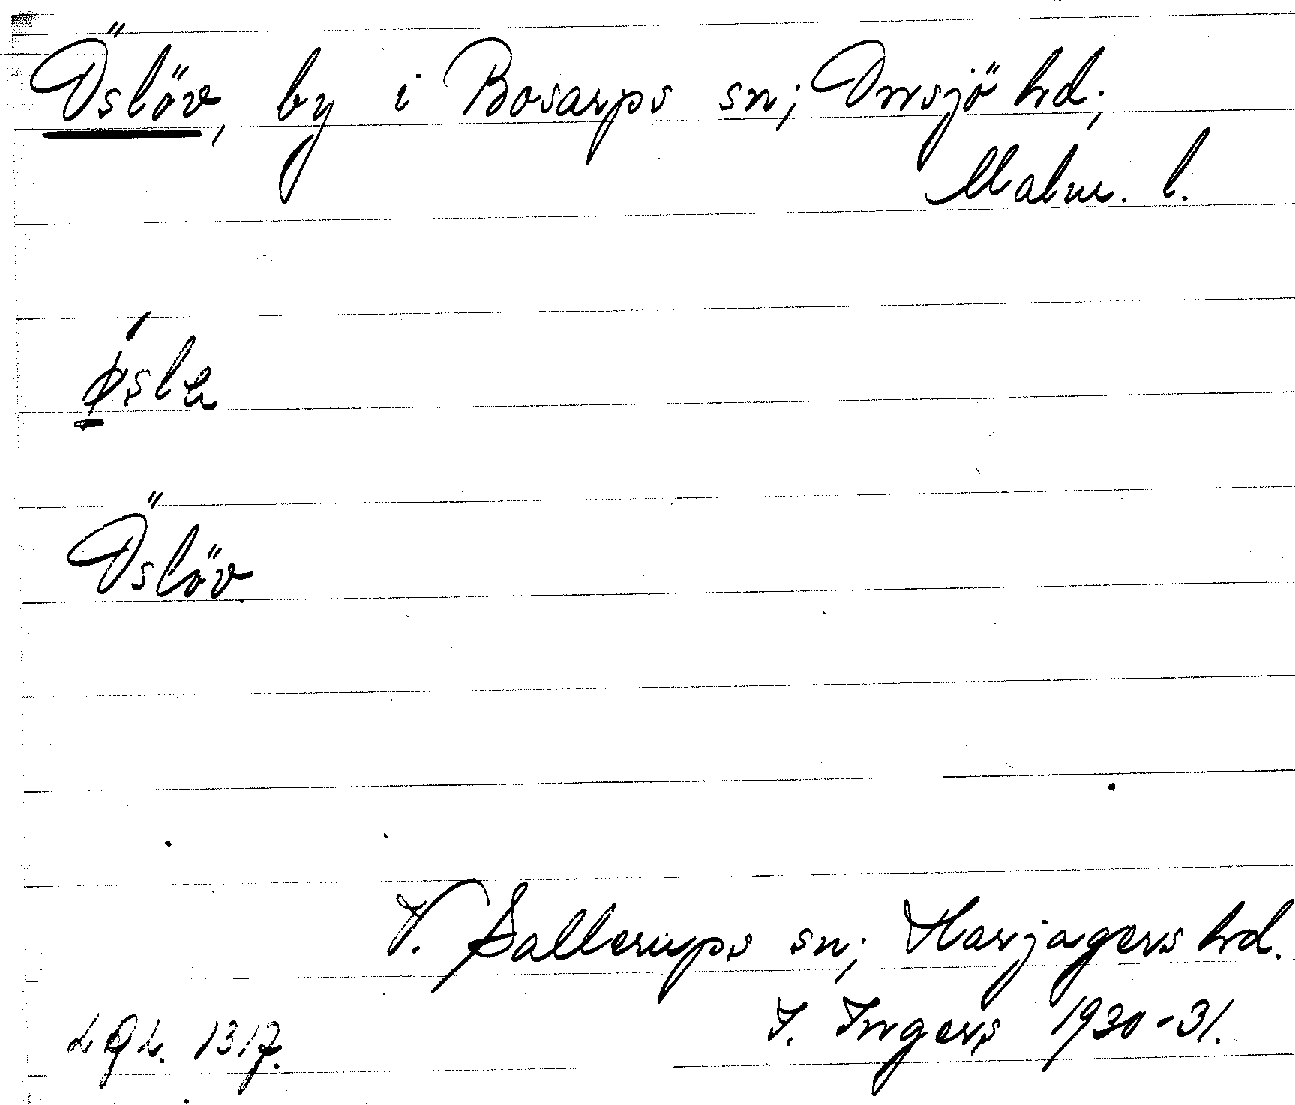 Öslöv, by i Bosarps sn; Onsjö hd;
Malm. l.
Öslöv
V. Sallerups sn; Harjagers hd.
I. Ingers 1930-31.
1317.